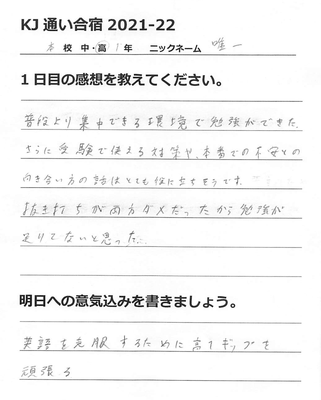 KJ 通い合宿 2021-22
本 校 中・高 1 年 ニックネーム 唯一
1日目の感想を教えてください。
普段より集中できる環境で勉強ができた。
さらに受験で使える対策や、本番での不安との
向き合い方の話はとても役に立ちそうです。
抜き打ちが両方ダメだったから勉強が
足りてないと思った。
明日への意気込みを書きましょう。
英語を克服するために言てギップを
頑張る